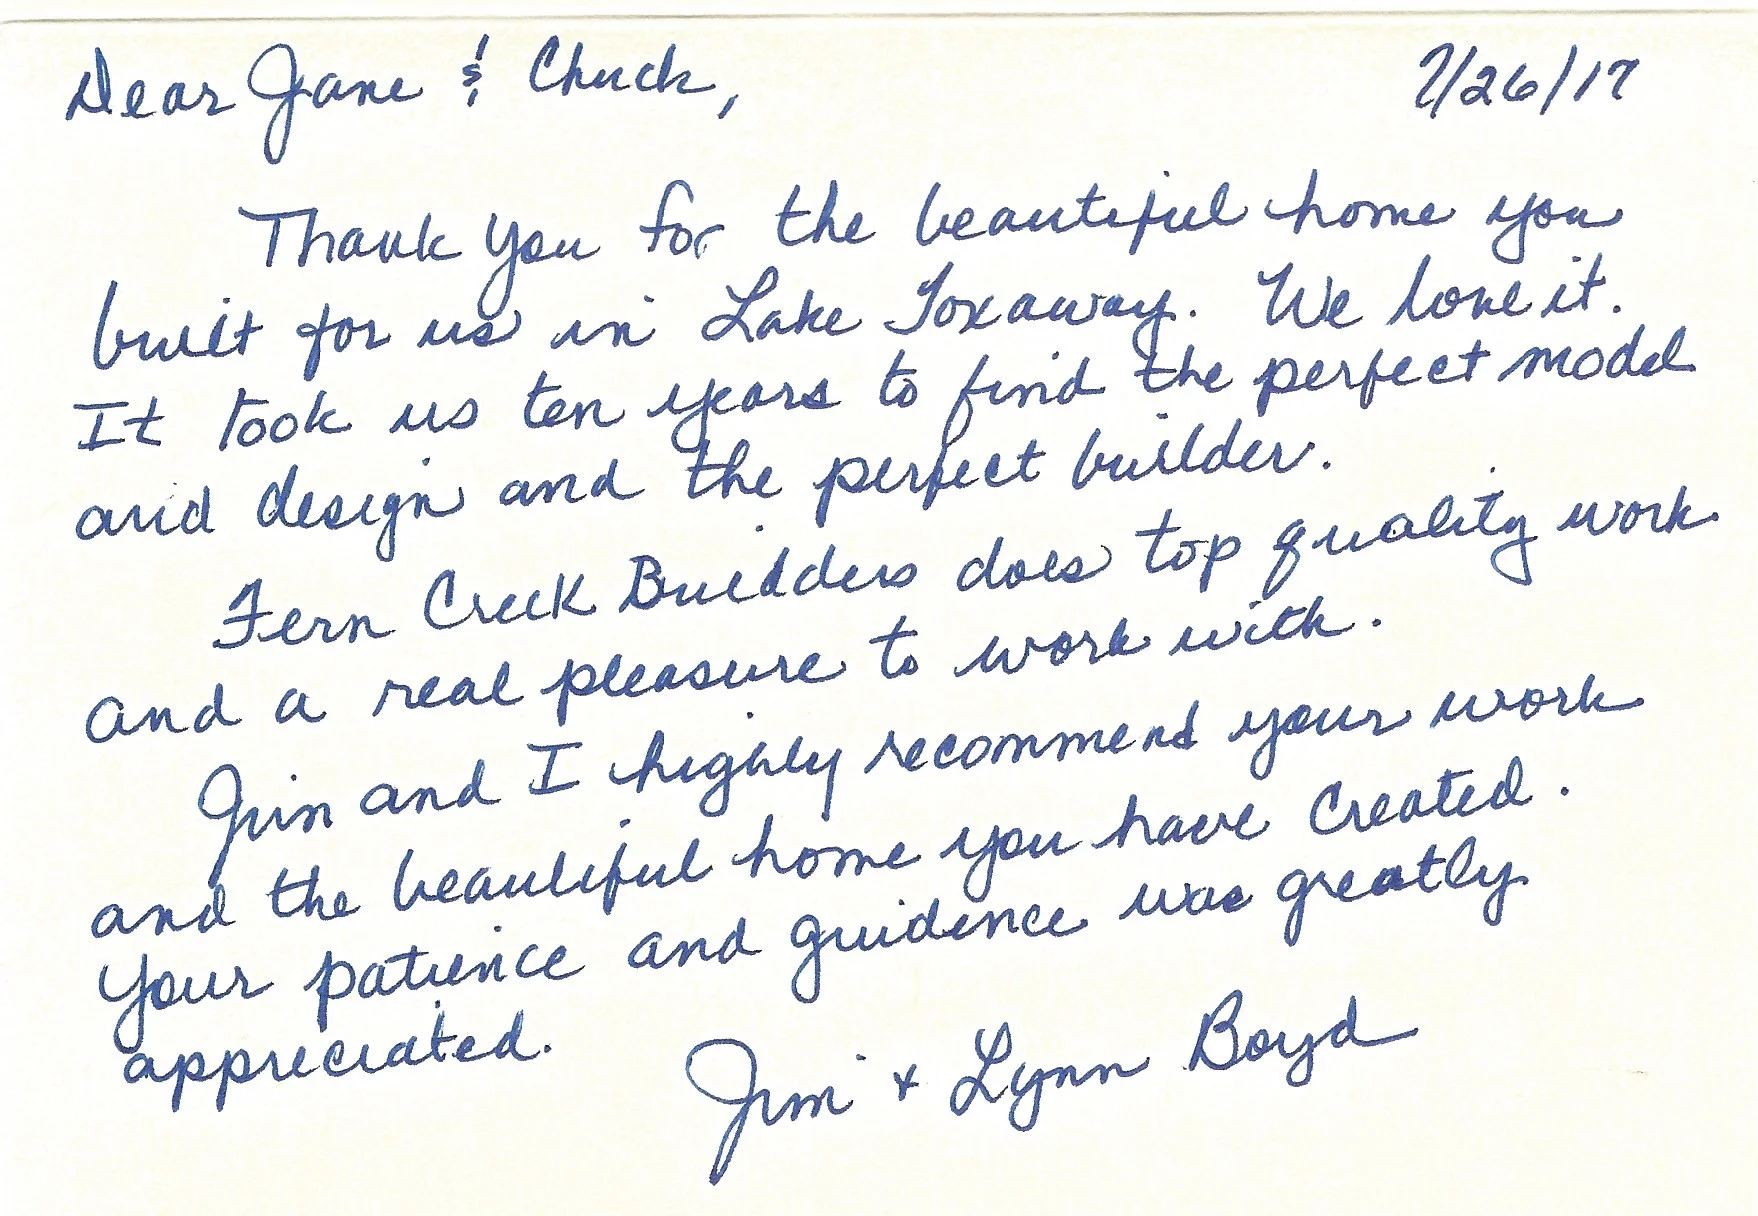 Dear Jane & Chuck, 7/26/17
Thank you for the beautiful home you
built for us in Lake Toxaway. We love it.
It took us ten years to find the perfect model
and design and the perfect builder.
Fern Creek Builders does top quality work
and a real pleasure to work with.
Jim and I highly recommend your work
and the beautiful home you have created.
Your patience and guidence was greatly
appreciated.
Jim + Lynn Boyd